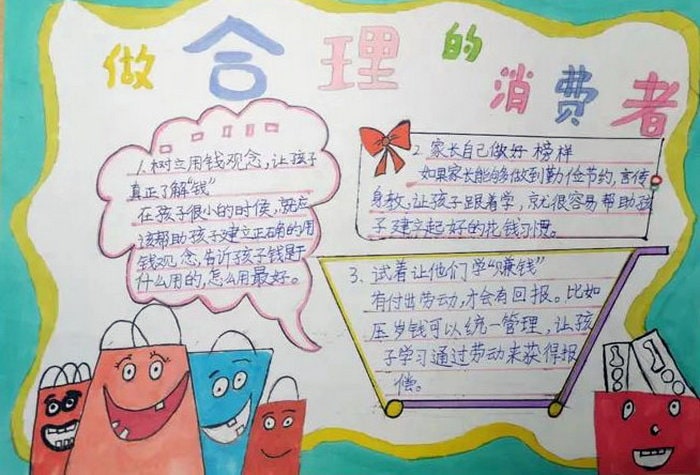 做合理的消费者
1. 树立用钱观念，让孩子
真正了解“钱”
在孩子很小的时候，就应
该帮助孩子建立正确的用
钱观念，告诉孩子钱是干
什么用的，怎么用最好。
2 家长自己做好 榜样
如果家长能够做到勤俭节约，言传
身教，让孩子跟着学，就很容易帮助孩
子建立起好的花钱习惯。
3. 试着让他们学“赚钱”
有付出劳动，才会有回报。比如
压岁钱可以统一管理，让孩
子学习通过劳动来获得报
偿。